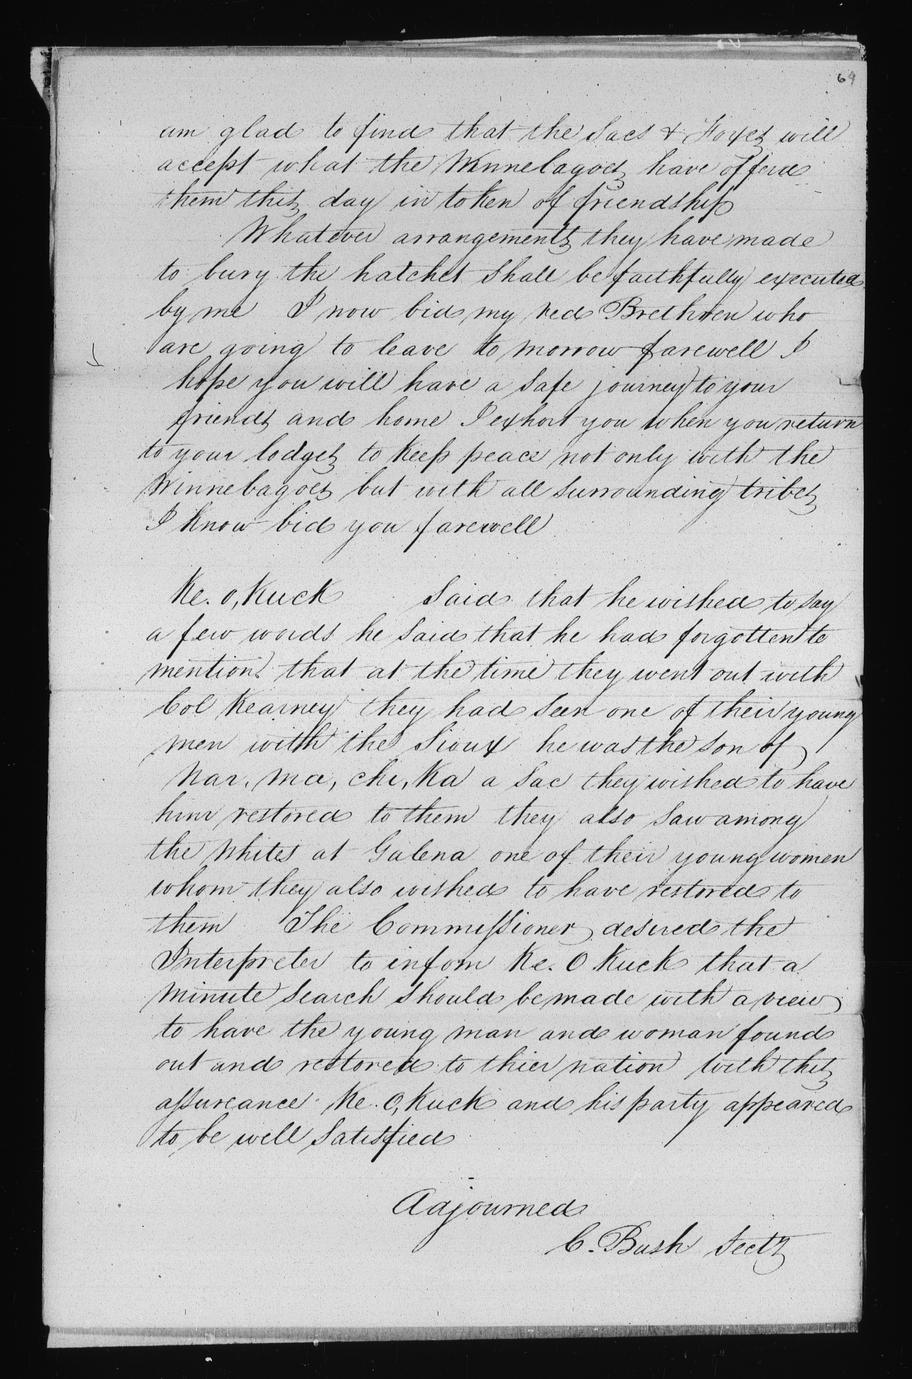 69
am glad to find that the Sacs & Foxes will
accept what the Winnebagoes have offerd
them this day in token of friendship
Whatever arrangements they have made
to bury the hatchet shall be faithfully executed
by me I now bid my red Brethren who
are going to leave to morrow farewell I
hope you will have a safe journey to your
friends and home I exhort you when you return
to your lodges to keep peace not only with the
Winnebagoes but with all surrounding tribes
I know bid you farewell
Ke. O, Kuck Said that he wished to say
a few words he said that he had forgotten to
mention that at the time they went out with
Col Kearney they had seen one of their young
men with the Sioux he was the son of
Nar, ma, che, Ka a Sac they wished to have
him restored to them they also saw among
the Whites at Galena one of their young women
whom they also wished to have restored to
them The Commissioner desired the
Interpreter to infom Ke. O Kuck that a
minute search should be made with a view
to have the young man and woman found
out and restored to thier nation With this
assureance Ke. O, Kuck and his party appeared
to be well satisfied
Adjourned
C. Bush Secty